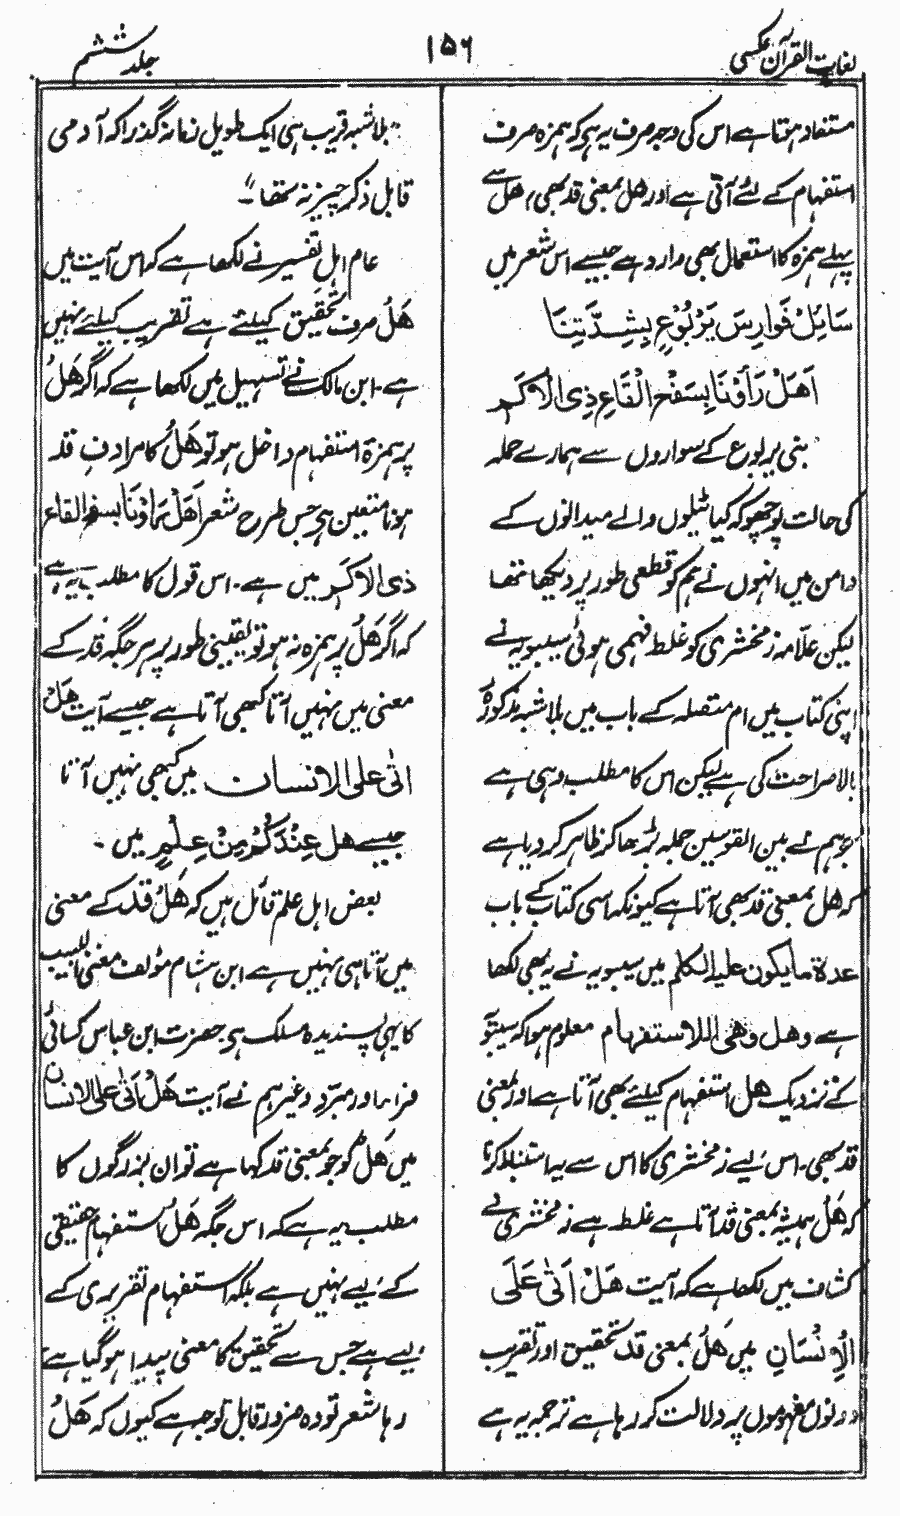 لغات القرآن عکسی
۱۵۶
جلد ششم
مستفاد ہوتا ہے اس کی وجہ صرف یہ ہے کہ ہمزہ صرف
استفہام کے لئے آتی ہے اور ھل بمعنی قد بھی، ھل سے
پہلے ہمزہ کا استعمال بھی وارد ہے جیسے اس شعر میں
سَائِلْ فَوَارِسَ یَرْبُوْعٍ بِشِدَّتِنَا
اَهَلْ رَأَوْنَا بِسَفْحِ الْقَاعِ ذِی الْاَکَمِ
بنی یربوع کے سواروں سے ہمارے حملہ
کی حالت پوچھو کہ کیا ٹیلوں والے میدانوں کے
دامن میں انہوں نے ہم کو قطعی طور پر دیکھا تھا
لیکن علّامہ زمخشری کو غلط فہمی ہوئی سیبویہ نے
اپنی کتاب میں ام متصلہ کے باب میں بلا شبہ مذکورہ
بالا صراحت کی ہے لیکن اس کا مطلب وہی ہے
جو ہم نے بین القوسین جملہ بڑھا کر ظاہر کر دیا ہے
کہ ھل بمعنی قد بھی آتا ہے کیونکہ اسی کتاب کے باب
عدۃ ما یکون علیہ الکلم میں سیبویہ نے یہ بھی لکھا
ہے وھل وھی للاستفہام معلوم ہوا کہ سیبویہ
کے نزدیک ھل استفہام کیلئے بھی آتا ہے اور بمعنی
قد بھی۔ اس لیے زمخشری کا اس سے یہ استنباط کرنا
کہ ھَلْ ہمیشہ بمعنی قَد آتا ہے غلط ہے زمخشری نے
کشاف میں لکھا ہے کہ آیت ھَلْ اَتٰی عَلَی
الْاِنْسَانِ میں ھَلْ بمعنی قد تحقیق اور تقریب
دونوں مفہوموں پر دلالت کر رہا ہے ترجمہ یہ ہے
بلا شبہ قریب ہی ایک طویل زمانہ گذرا کہ آدمی
قابل ذکر چیز نہ تھا"۔
عام اہل تفسیر نے لکھا ہے کہ اس آیت میں
ھَلْ صرف تحقیق کیلئے ہے تقریب کیلئے نہیں
ہے۔ ابن مالک نے تسہیل میں لکھا ہے کہ اگر ھَلْ
پر ہمزۃ استفہام داخل ہو تو ھَلْ کا مرادفِ قد
ہونا متعین ہے جس طرح شعر اَهَلْ رَأوْنَا بسفح القاع
ذی الاکم میں ہے۔ اس قول کا مطلب یہ ہے
کہ اگر ھَلْ پر ہمزہ نہ ہو تو یقینی طور پر ہر جگہ قَد کے
معنی میں نہیں آتا کبھی آتا ہے جیسے آیت ھَلْ
اتٰی علی الانسان میں کبھی نہیں آتا
جیسے ھل عِنْدَکُمْ مِنْ عِلْمٍ میں۔
بعض اہل علم قائل ہیں کہ ھَلْ قَد کے معنی
میں آتا ہی نہیں ہے ابن ہشام مؤلف مغنی اللبیب
کا یہی پسندیدہ مسلک ہے حضرت ابن عباس کسائی
فراء اور مبرد وغیرہم نے آیت ھَلْ اَتٰی علی الانسان
میں ھَلْ کو جو بمعنی قد کہا ہے تو ان بزرگوں کا
مطلب یہ ہے کہ اس جگہ ھَلْ استفہام حقیقی
کے لیے نہیں ہے بلکہ استفہام تقریری کے
لیے ہے جس سے تحقیق کا معنی پیدا ہو گیا ہے
رہا شعر تو وہ ضرور قابل توجہ ہے کیوں کہ ھَلْ